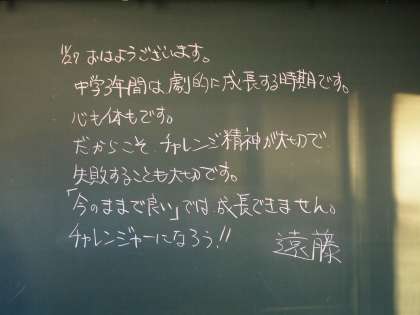 11/27 おはようございます。
中学3年間は劇的に成長する時期です。
心も体もです。
だからこそ、チャレンジ精神が大切で
失敗することも大切です。
「今のままで良い」では成長できません。
チャレンジャーになろう!!
遠藤